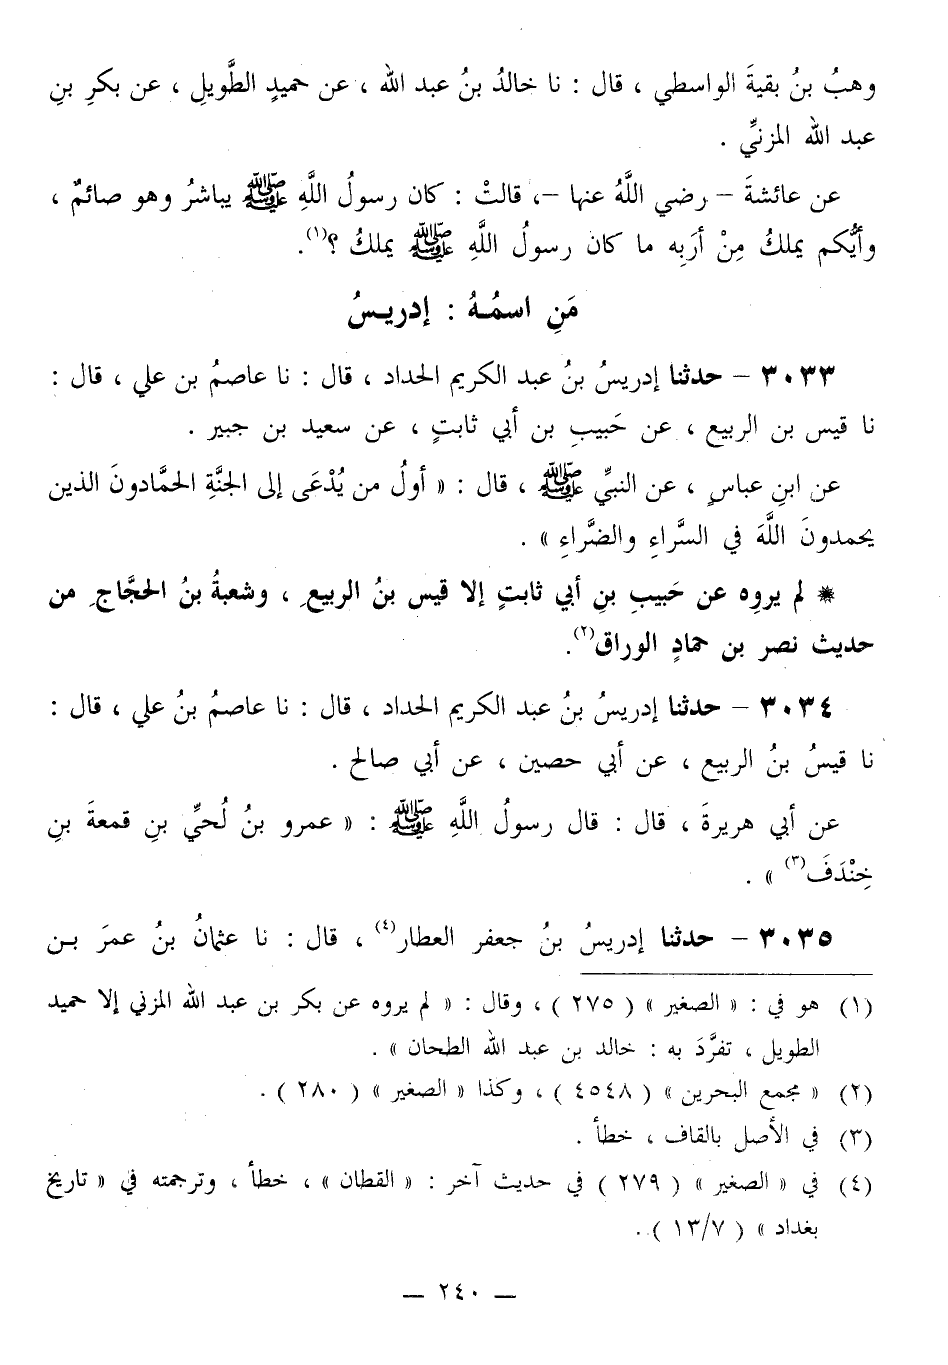 وهبُ بنُ بقيةَ الواسطي ، قال : نا خالدُ بنُ عبد الله ، عن حميدٍ الطَّويلِ ، عن بكرِ بنِ
عبد الله المزنيِّ .
عن عائشةَ – رضي اللَّهُ عنها –، قالتْ : كان رسولُ اللَّهِ ﷺ يباشرُ وهو صائمٌ ،
وأيُّكم يملكُ مِنْ أرَبِه ما كان رسولُ اللَّهِ ﷺ يملكُ ؟(١).
مَنِ اسمُهُ : إدريسُ
٣٠٣٣ – حدثنا إدريسُ بنُ عبد الكريم الحداد ، قال : نا عاصمُ بن علي ، قال :
نا قيس بن الربيع ، عن حَبيبِ بن أبي ثابتٍ ، عن سعيد بن جبير .
عن ابنِ عباسٍ ، عن النبيِّ ﷺ ، قال : « أولُ من يُدْعَى إلى الجنَّةِ الحمَّادونَ الذين
يحمدونَ اللَّهَ في السَّراءِ والضَّراءِ » .
* لم يروِه عن حَبيبِ بنِ أبي ثابتٍ إلا قيس بنُ الربيعِ ، وشعبةُ بنُ الحجَّاجِ من
حديث نصر بن حمادٍ الوراق(٢).
٣٠٣٤ – حدثنا إدريسُ بنُ عبد الكريم الحداد ، قال : نا عاصمُ بنُ علي ، قال :
نا قيسُ بنُ الربيع ، عن أبي حصين ، عن أبي صالح .
عن أبي هريرةَ ، قال : قال رسولُ اللَّهِ ﷺ : « عمرو بنُ لُحيِّ بنِ قمعةَ بنِ
خِنْدَفَ(٣) » .
٣٠٣٥ – حدثنا إدريسُ بنُ جعفر العطار(٤) ، قال : نا عثمانُ بنُ عمرَ بـن
(١) هو في : « الصغير » ( ٢٧٥ ) ، وقال : « لم يروه عن بكر بن عبد الله المزني إلا حميد
الطويل ، تفرَّدَ به : خالد بن عبد الله الطحان » .
(٢) « مجمع البحرين » ( ٤٥٤٨ ) ، وكذا « الصغير » ( ٢٨٠ ) .
(٣) في الأصل بالقاف ، خطأ .
(٤) في « الصغير » ( ٢٧٩ ) في حديث آخر : « القطان » ، خطأ ، وترجمته في « تاريخ
بغداد » ( ١٣/٧ ) .
— ٢٤٠ —